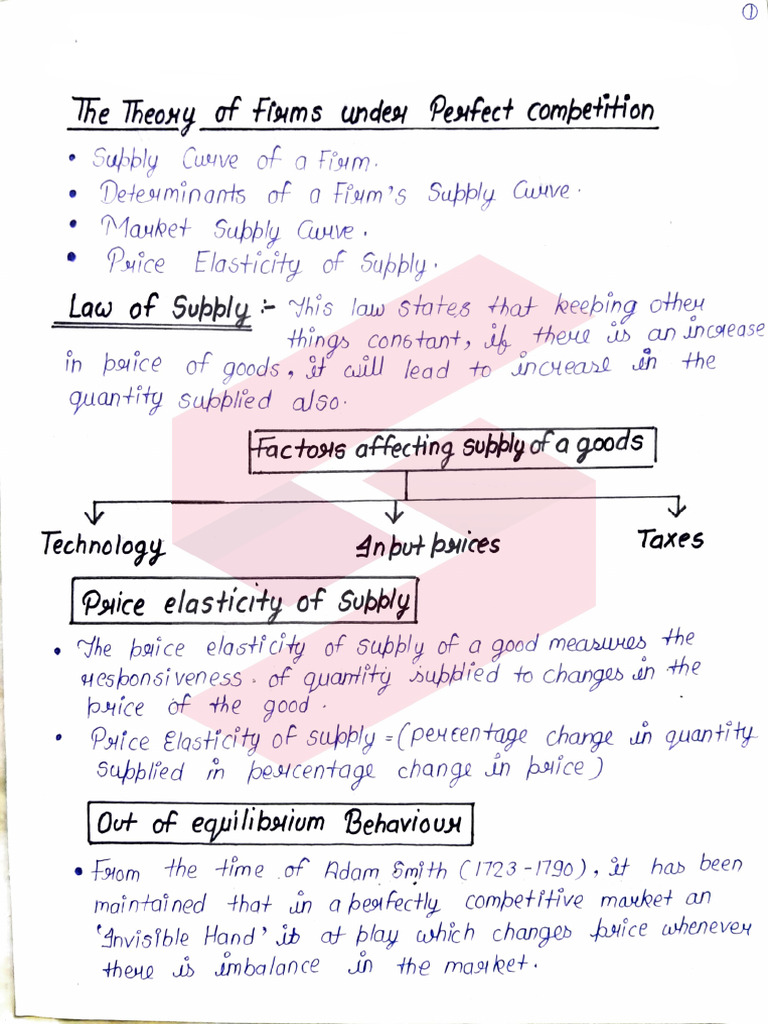 1
The Theory of Firms under Perfect competition
• Supply Curve of a Firm.
• Determinants of a Firm's Supply Curve.
• Market Supply Curve.
• Price Elasticity of Supply.
Law of Supply :- This law states that keeping other
things constant, if there is an increase
in price of goods, it will lead to increase in the
quantity supplied also.
Factors affecting supply of a goods
Technology Input prices Taxes
Price elasticity of Supply
• The price elasticity of supply of a good measures the
responsiveness. of quantity supplied to changes in the
price of the good.
• Price Elasticity of supply = (percentage change in quantity
supplied in percentage change in price)
Out of equilibrium Behaviour
• From the time of Adam Smith (1723-1790), it has been
maintained that in a perfectly competitive market an
'Invisible Hand' is at play which changes price whenever
there is imbalance in the market.